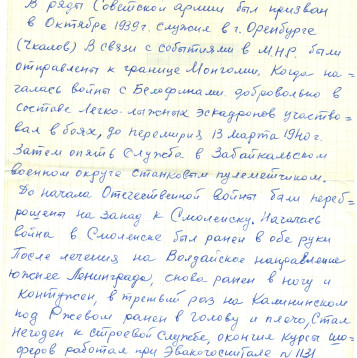 В ряды Советской армии был призван
в Октябре 1939 г. служил в г. Оренбурге
(Чкалов) В связи с событиями в М.Н.Р. были
отправлены к границе Монголии. Когда на-
чалась война с Белофинами. добровольно в
составе Легко-лыжных эскадронов участво-
вал в боях, до перемирия 13 марта 1940 г.
Затем опять служба в Забайкальском
военном округе станковым пулеметчиком.
До начала Отечественной войны были переб-
рошены на запад к Смоленску. Началась
война в Смоленске был ранен в обе руки
После лечения на Волдайское направление
южнее Ленинграда, снова ранен в ногу и
контужен, в третьий раз на Калининском
под Ржевом ранен в голову и плечо, Стал
негоден к строевой службе, окончил курсы шо-
феров работал при Эвакогоспитале № 1131